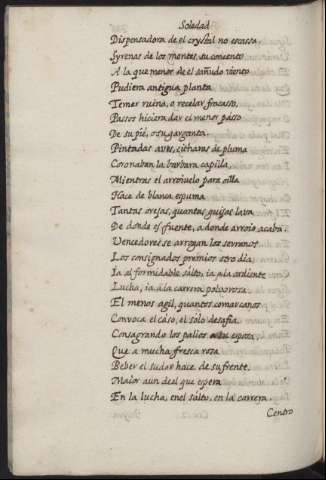 Soledad
Dispensadora de el crystal no escassa,
Syrenas de los montes, su concento
A la que menos de el sañudo viento
Pudiera antigua planta
Temer ruina, o recelar fracasso,
Passos hiciera dar el menor passo
De su pie, o su garganta.
Pintadas aves, citharas de pluma
Coronaban la barbara capilla,
Mientras el arroiuelo para oilla
Hace de blanca espuma
Tantas orejas, quantas guijas lava
De donde es fuente, a donde arroio acaba.
Vencedores se arrogan los serranos
Los consignados premios otro dia,
Ia al formidable salto, ia a la ardiente
Lucha, ia a la carrera polvorosa.
El menos agil, quantos comarcanos
Convoca el caso, el solo desafia
Consagrando los palios a su esposa,
Que a mucha fresca rosa
Beber el sudor hace de su frente,
Maior aun de el que espera
En la lucha, en el salto, en la carrera.
Centro